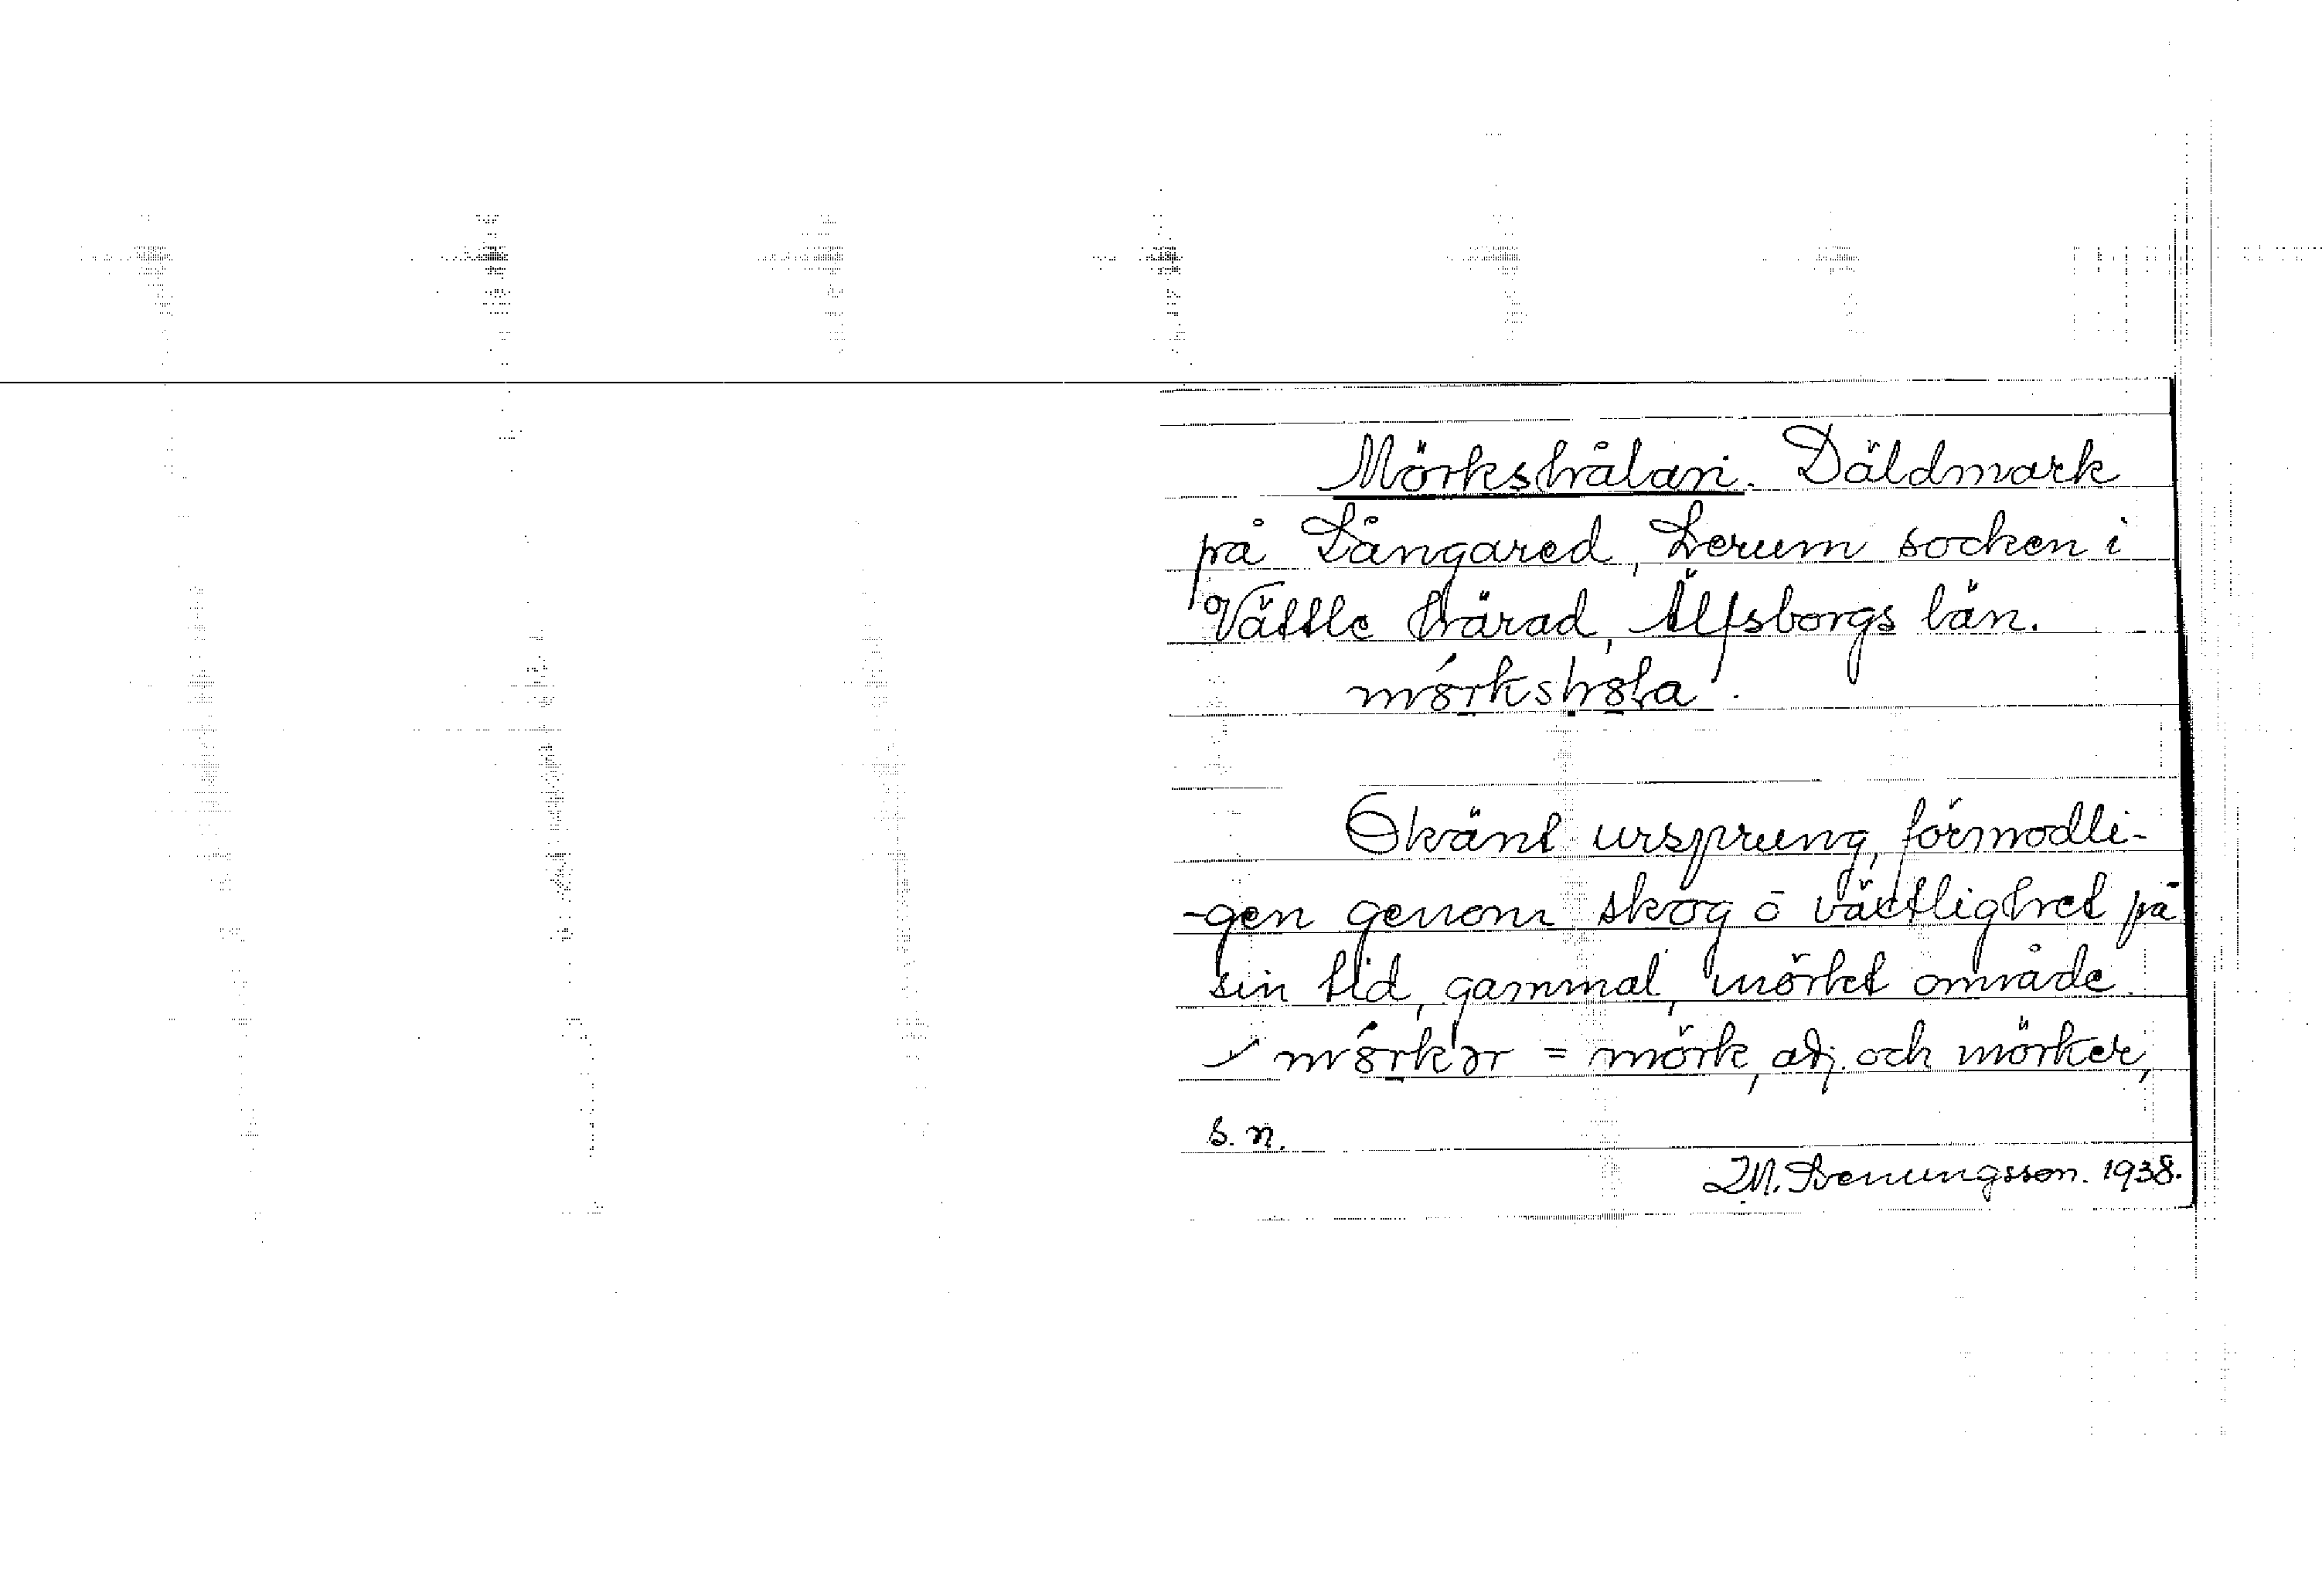 Mörkshålan. Däldmark
på Långared, Lerum socken i
Vättle härad, Älfsborgs län.
mörkshola.
Okänt ursprung, förmodli-
-gen genom skog o växtlighet på
sin tid, gammal, mörket område
mörkər = mörk, adj. och mörker,
s. n.
M. Svenungsson. 1938.